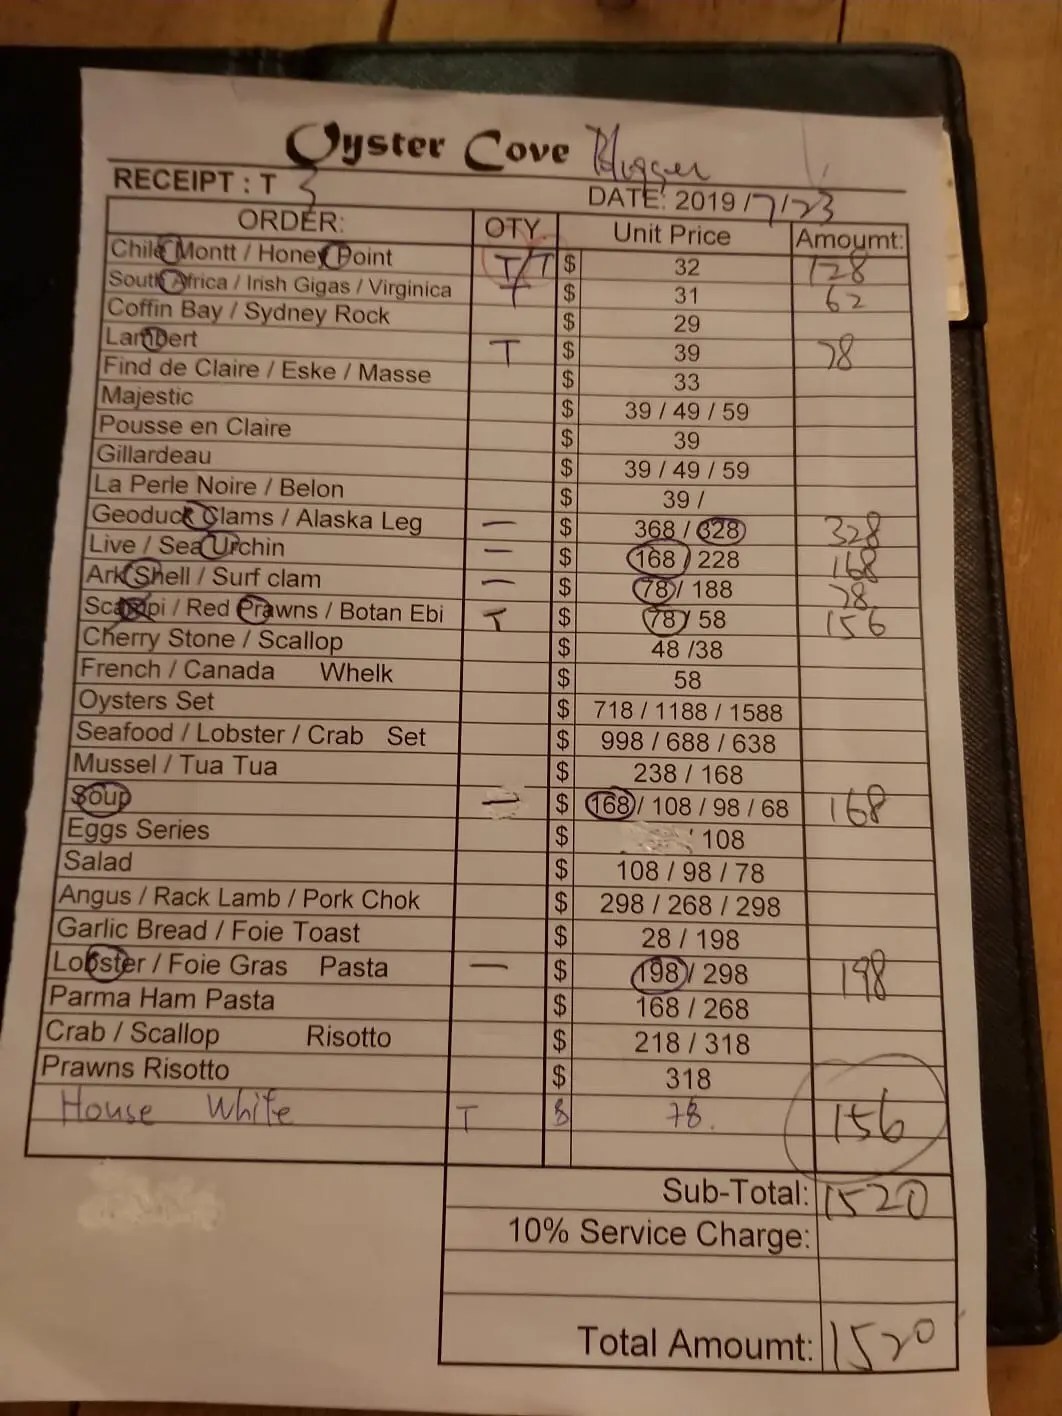 Oyster Cove Blogger
RECEIPT : T 3 DATE: 2019 / 7 / 23
ORDER: QTY. Unit Price Amoumt:
Chile Montt / Honey Point T/T $ 32 128
South Africa / Irish Gigas / Virginica T $ 31 62
Coffin Bay / Sydney Rock $ 29
Lambert T $ 39 78
Find de Claire / Eske / Masse $ 33
Majestic $ 39 / 49 / 59
Pousse en Claire $ 39
Gillardeau $ 39 / 49 / 59
La Perle Noire / Belon $ 39 /
Geoduck Clams / Alaska Leg — $ 368 / 328 328
Live / Sea Urchin — $ 168 / 228 168
Ark Shell / Surf clam — $ 78 / 188 78
Scampi / Red Prawns / Botan Ebi T $ 78 / 58 156
Cherry Stone / Scallop $ 48 /38
French / Canada Whelk $ 58
Oysters Set $ 718 / 1188 / 1588
Seafood / Lobster / Crab Set $ 998 / 688 / 638
Mussel / Tua Tua $ 238 / 168
Soup — $ 168 / 108 / 98 / 68 168
Eggs Series $ / 108
Salad $ 108 / 98 / 78
Angus / Rack Lamb / Pork Chok $ 298 / 268 / 298
Garlic Bread / Foie Toast $ 28 / 198
Lobster / Foie Gras Pasta — $ 198 / 298 198
Parma Ham Pasta $ 168 / 268
Crab / Scallop Risotto $ 218 / 318
Prawns Risotto $ 318
House White T $ 78. 156
Sub-Total: 1520
10% Service Charge:
Total Amoumt: 1520